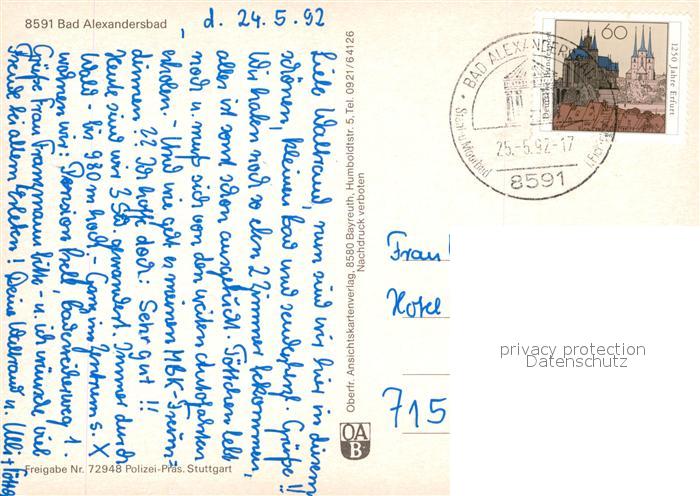 8591 Bad Alexandersbad
d. 24.5.92
Liebe Waltraud, nun sind wir hier in diesem
schönen, kleinen Bad und senden Grüße!!
Wir haben noch so eben 2 Zimmer bekommen,
alles ist sonst schon ausgebucht. Töttchen lebt
noch u. muß sich von den weiten Autofahrten
erholen. - Und wie geht es meinen MBK-Freun-
dinnen?? Ich hoffe doch: Sehr gut!!
Heute sind wir 3 Std. gewandert. Immer durch
Wald - bis 980 m hoch - Ganz im Zentrum s. X
wohnen wir: Pension Riedl, Badeweiherweg 1.
Grüße Frau bitte - u. ich wünsche viel
Freude bei allem Erleben! Deine Waltraud u. Ulli +
Freigabe Nr. 72948 Polizei-Präs. Stuttgart
Oberfr. Ansichtskartenverlag, 8580 Bayreuth, Humboldtstr. 5, Tel. 0921/64126
Nachdruck verboten
OA
B
BAD ALEXANDERSBAD
Stahl-u. Moorbad
25.-5.92-17
8591
60
Deutsche Bundespost
1250 Jahre Erfurt
Frau
Hotel
715
privacy protection
Datenschutz